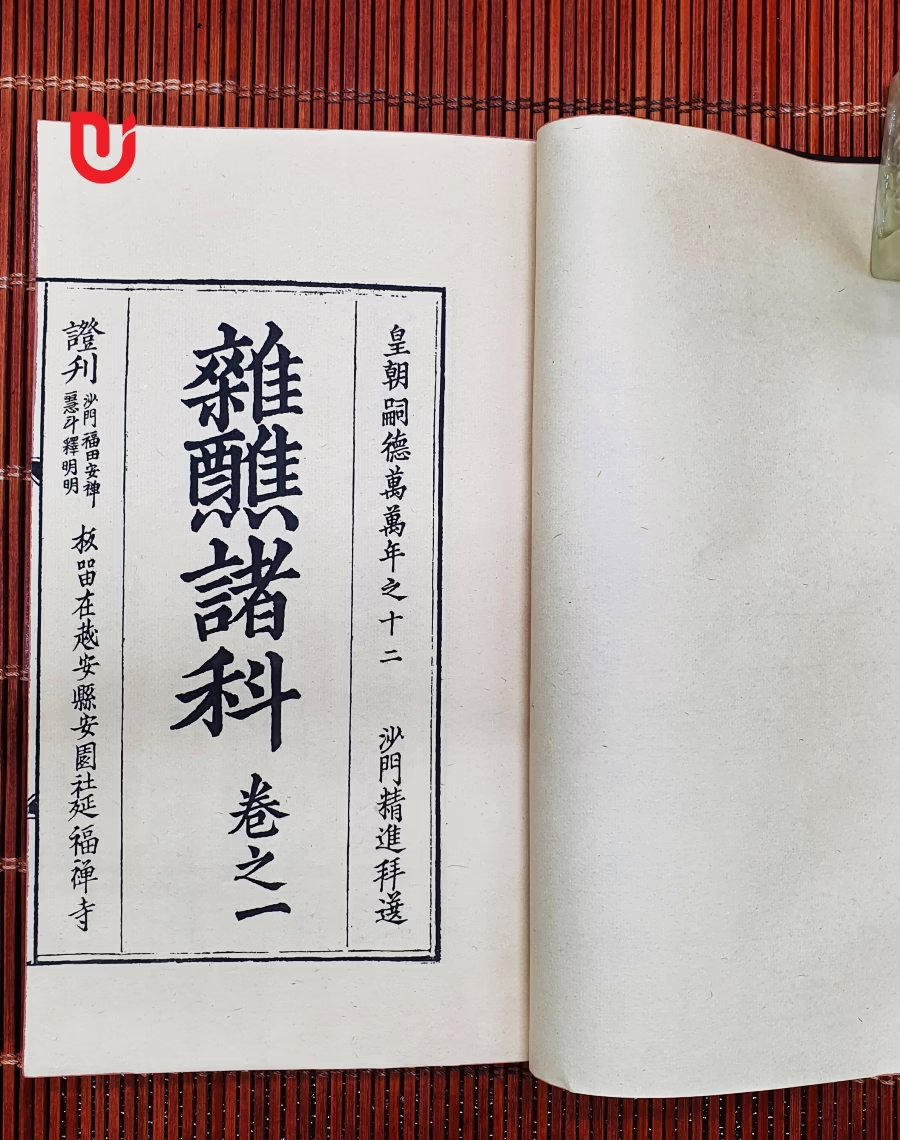 皇朝嗣德萬萬年之十二 沙門精進拜選
雜醮諸科 卷之一
證刋 沙門福田安禅
慧斗釋明明
板畱在越安縣安園社延福禅寺